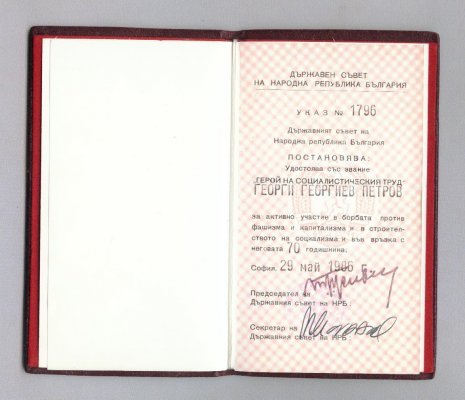 ДЪРЖАВЕН СЪВЕТ
НА НАРОДНА РЕПУБЛИКА БЪЛГАРИЯ
УКАЗ № 1796
Държавният съвет на
Народна република България
ПОСТАНОВЯВА:
Удостоява със звание
„ГЕРОЙ НА СОЦИАЛИСТИЧЕСКИЯ ТРУД“
ГЕОРГИ ГЕОРГИЕВ ПЕТРОВ
за активно участие в борбата против
фашизма и капитализма и в строител-
ството на социализма и във връзка с
неговата 70 годишнина.
София, 29 май 1986 г.
Председател на
Държавния съвет на НРБ:
Секретар на
Държавния съвет на НРБ: